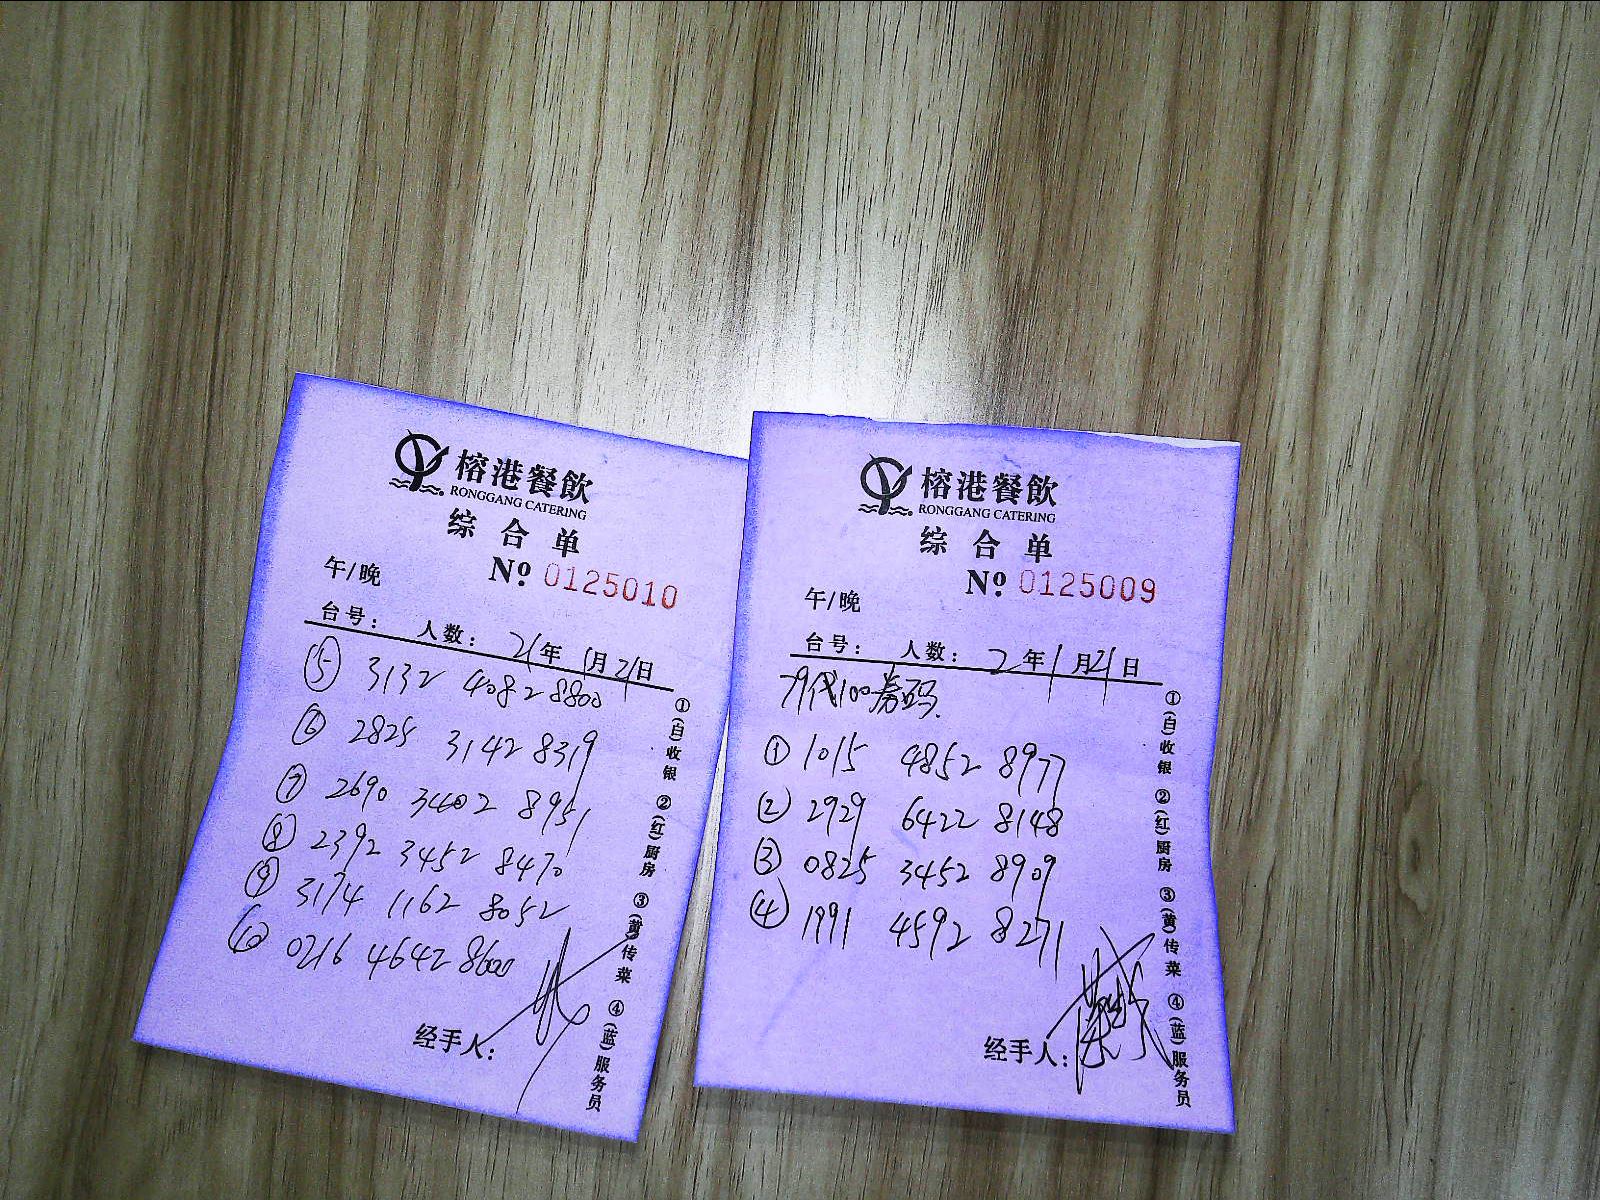 榕港餐飲
RONGGANG CATERING
综合单
午/晚
№ 0125010
台号： 人数： 21年1月21日
⑤ 3132 4082 8800
⑥ 2825 3142 8319
⑦ 2690 3402 8951
⑧ 2392 3452 8470
⑨ 3174 1162 8052
⑩ 0216 4642 8600
经手人：
①(白)收银 ②(红)厨房 ③(黄)传菜 ④(蓝)服务员
榕港餐飲
RONGGANG CATERING
综合单
午/晚
№ 0125009
台号： 人数： 2年1月21日
79代100券码
① 1015 4852 8977
② 2929 6422 8148
③ 0825 3452 8909
④ 1991 4592 8271
经手人：
①(白)收银 ②(红)厨房 ③(黄)传菜 ④(蓝)服务员